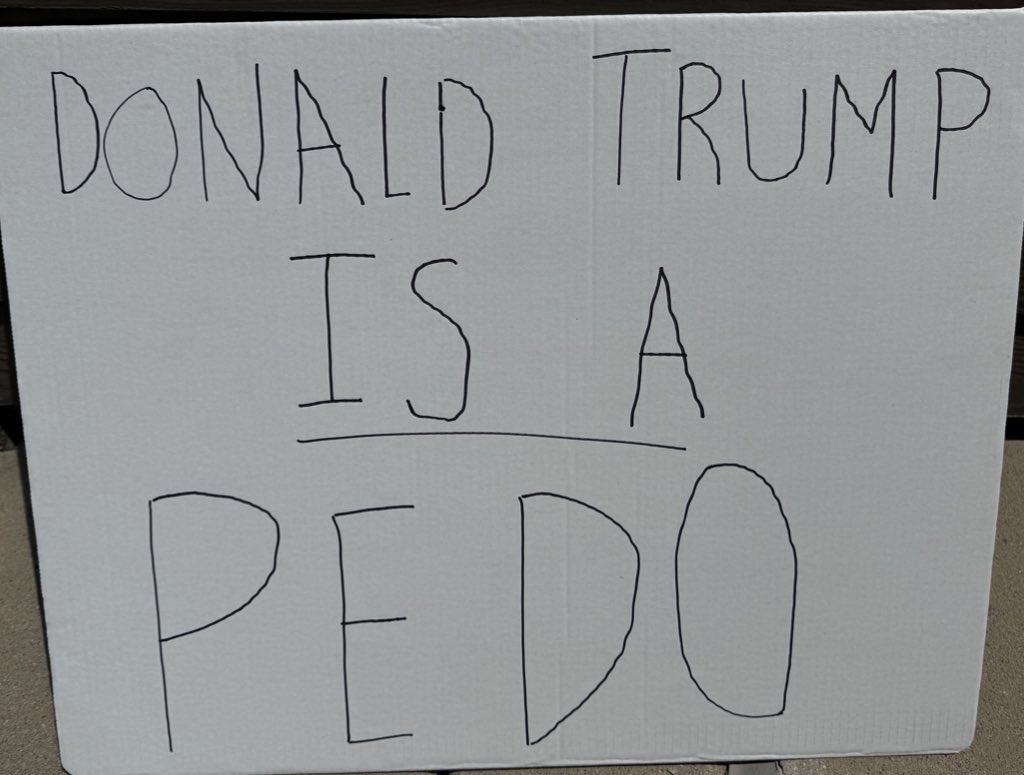 DONALD TRUMP
IS A
PEDO